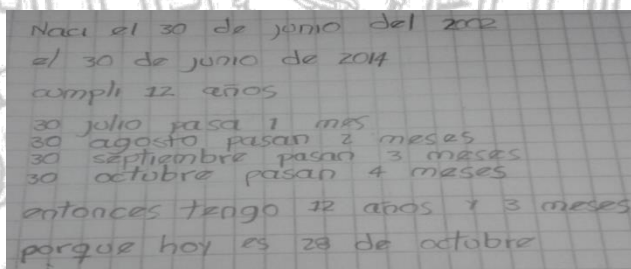 Naci el 30 de junio del 2002
el 30 de junio de 2014
cumpli 12 años
30 julio pasa 1 mes
30 agosto pasan 2 meses
30 septiembre pasan 3 meses
30 octubre pasan 4 meses
entonces tengo 12 años y 3 meses
porque hoy es 28 de octubre